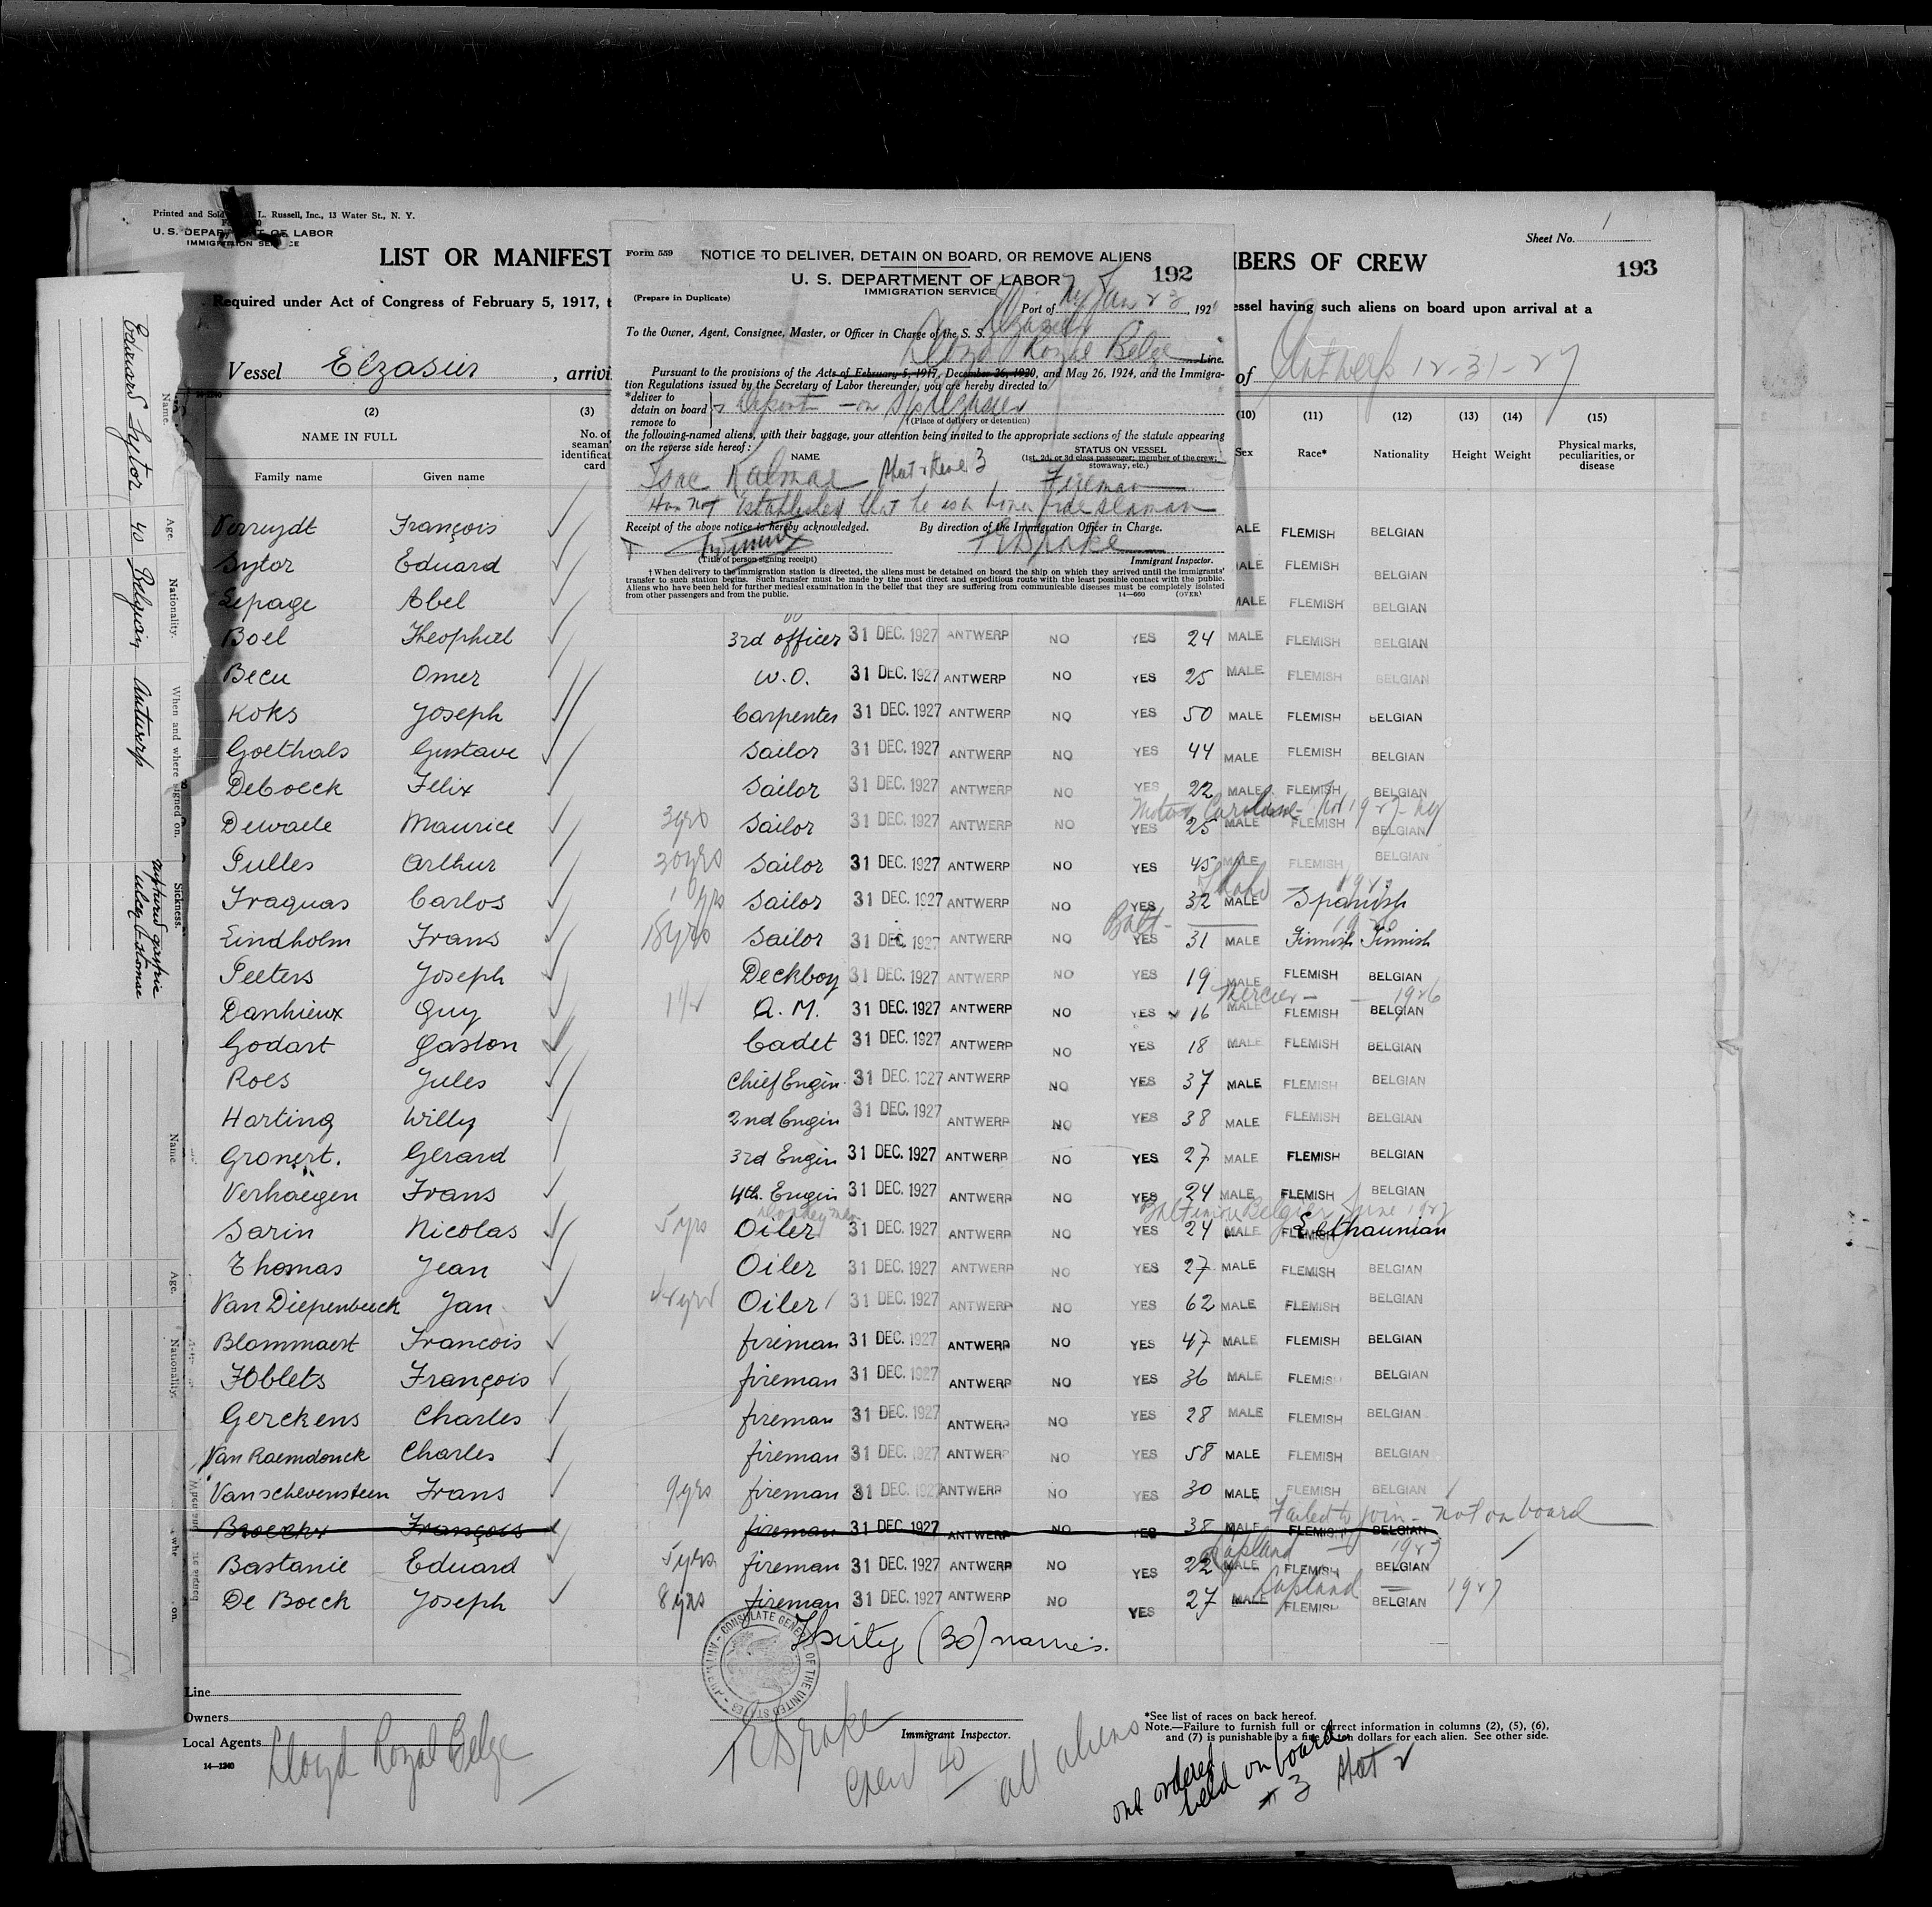 Printed and Sold L. Russell, Inc., 13 Water St., N. Y.
U. S. DEPARTMENT OF LABOR
IMMIGRATION SERVICE
Sheet No. 1
193
LIST OR MANIFEST
BERS OF CREW
Required under Act of Congress of February 5, 1917, t
essel having such aliens on board upon arrival at a
Vessel Elzasier , arrivi
of Antwerp 12-31-27
Form 559
NOTICE TO DELIVER, DETAIN ON BOARD, OR REMOVE ALIENS
U. S. DEPARTMENT OF LABOR
192
IMMIGRATION SERVICE
(Prepare in Duplicate)
Port of NY Jan 23 , 192
To the Owner, Agent, Consignee, Master, or Officer in Charge of the S. S. Elzasier
Lloyd Royale Belge Line.
Pursuant to the provisions of the Acts of February 5, 1917, December 26, 1920, and May 26, 1924, and the Immigra-
tion Regulations issued by the Secretary of Labor thereunder, you are hereby directed to
*deliver to
detain on board
remove to
& deport - on SS Elzasier
†(Place of delivery or detention)
the following-named aliens, with their baggage, your attention being invited to the appropriate sections of the statute appearing
on the reverse side hereof:
NAME
STATUS ON VESSEL
(1st, 2d, or 3d class passenger; member of the crew;
stowaway, etc.)
Isac Kalmar Sheet 2 Line 3 Fireman
Has Not Established that he is a bona fide seaman
Receipt of the above notice is hereby acknowledged. By direction of the Immigration Officer in Charge.
(Title of person signing receipt)
Drake
Immigrant Inspector.
†When delivery to the immigration station is directed, the aliens must be detained on board the ship on which they arrived until the immigrants'
transfer to such station begins. Such transfer must be made by the most direct and expeditious route with the least possible contact with the public.
Aliens who have been held for further medical examination in the belief that they are suffering from communicable diseases must be completely isolated
from other passengers and from the public.
14—660 (OVER)
(2) NAME IN FULL
Family name Given name
(3) No. of seaman's identification card
(10) Sex
(11) Race*
(12) Nationality
(13) Height
(14) Weight
(15) Physical marks, peculiarities, or disease
Verruydt François MALE FLEMISH BELGIAN
Sytor Eduard MALE FLEMISH BELGIAN
Lepage Abel MALE FLEMISH BELGIAN
Boel Theophiel 3rd officer 31 DEC. 1927 ANTWERP NO YES 24 MALE FLEMISH BELGIAN
Becu Omer W.O. 31 DEC. 1927 ANTWERP NO YES 25 MALE FLEMISH BELGIAN
Koks Joseph Carpenter 31 DEC. 1927 ANTWERP NO YES 50 MALE FLEMISH BELGIAN
Goethals Gustave Sailor 31 DEC. 1927 ANTWERP NO YES 44 MALE FLEMISH BELGIAN
Deboeck Felix Sailor 31 DEC. 1927 ANTWERP NO YES 22 MALE FLEMISH BELGIAN
Dewaele Maurice 3yrs Sailor 31 DEC. 1927 ANTWERP NO YES 25 MALE FLEMISH BELGIAN
Pulles Arthur 30yrs Sailor 31 DEC. 1927 ANTWERP NO YES 45 MALE FLEMISH BELGIAN
Fraguas Carlos 10yrs Sailor 31 DEC. 1927 ANTWERP NO YES 32 MALE Spanish
Lindholm Frans 15yrs Sailor 31 DEC. 1927 ANTWERP NO YES 31 MALE Finnish Finnish
Peeters Joseph Deckboy 31 DEC. 1927 ANTWERP NO YES 19 MALE FLEMISH BELGIAN
Mercier - 1926
Danhieux Guy 1yr A.M. 31 DEC. 1927 ANTWERP NO YES 16 MALE FLEMISH BELGIAN
Godart Gaston Cadet 31 DEC. 1927 ANTWERP NO YES 18 MALE FLEMISH BELGIAN
Roes Jules Chief Engin. 31 DEC. 1927 ANTWERP NO YES 37 MALE FLEMISH BELGIAN
Harting Willy 2nd Engin 31 DEC. 1927 ANTWERP NO YES 38 MALE FLEMISH BELGIAN
Gronert. Gerard 3rd Engin 31 DEC. 1927 ANTWERP NO YES 27 MALE FLEMISH BELGIAN
Verhaegen Frans 4th. Engin 31 DEC. 1927 ANTWERP NO YES 24 MALE FLEMISH BELGIAN
Baltimore Belgier June 1927
Sarin Nicolas 5yrs Oiler 31 DEC. 1927 ANTWERP NO YES 24 MALE FLEMISH Lethaunian
Thomas Jean Oiler 31 DEC. 1927 ANTWERP NO YES 27 MALE FLEMISH BELGIAN
Van Diepenbeeck Jan Oiler 31 DEC. 1927 ANTWERP NO YES 62 MALE FLEMISH BELGIAN
Blommaert Francois fireman 31 DEC. 1927 ANTWERP NO YES 47 MALE FLEMISH BELGIAN
Foblets François fireman 31 DEC. 1927 ANTWERP NO YES 36 MALE FLEMISH BELGIAN
Gerckens Charles fireman 31 DEC. 1927 ANTWERP NO YES 28 MALE FLEMISH BELGIAN
Van Raemdonck Charles fireman 31 DEC. 1927 ANTWERP NO YES 58 MALE FLEMISH BELGIAN
Vanschevensteen Frans 9yrs fireman 31 DEC. 1927 ANTWERP NO YES 30 MALE FLEMISH BELGIAN
Failed to join - not on board
Broeckx François fireman 31 DEC. 1927 ANTWERP NO YES 38 MALE FLEMISH BELGIAN
Lapland - 1927
Bastanie Eduard 5yrs fireman 31 DEC. 1927 ANTWERP NO YES 22 MALE FLEMISH BELGIAN
Lapland - 1927
De Boeck Joseph 8yrs fireman 31 DEC. 1927 ANTWERP NO YES 27 MALE FLEMISH BELGIAN
Thirty (30) names.
CONSULATE GENERAL OF THE UNITED STATES
Line
Owners
Local Agents Lloyd Royal Belge
14—1240
Drake
Immigrant Inspector.
Crew 40 all aliens
*See list of races on back hereof.
Note.—Failure to furnish full or correct information in columns (2), (5), (6),
and (7) is punishable by a fine of ten dollars for each alien. See other side.
one ordered
held on board
#3 Sheet 2
Name. Age. Nationality. When and where signed on. Sickness.
Eduard Sytor 40 Belgian Antwerp ruptured gastric
ulcer stomac
Name Age. Nationality.